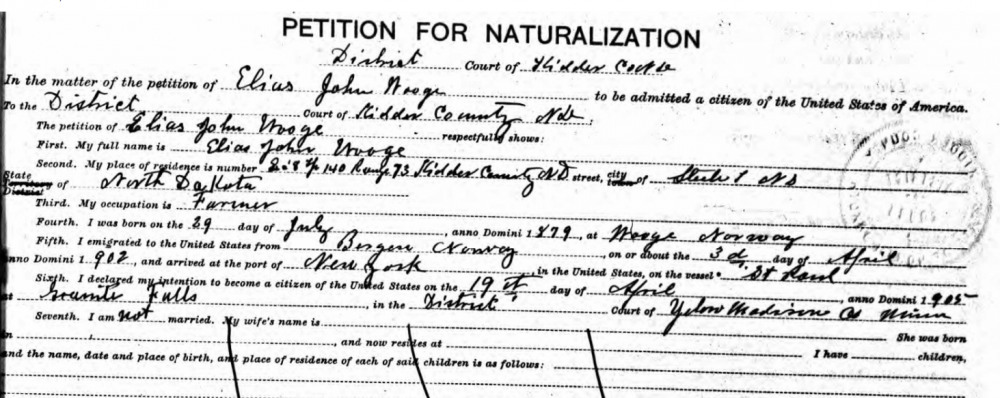 PETITION FOR NATURALIZATION
District Court of Kidder Co
In the matter of the petition of Elias John Wooge to be admitted a citizen of the United States of America.
To the District Court of Kidder County ND.
The petition of Elias John Wooge respectfully shows:
First. My full name is Elias John Wooge
Second. My place of residence is number 140 Range 73 Kidder County ND street, city town of Steele ND
State Territory District of North Dakota
Third. My occupation is Farmer
Fourth. I was born on the 29 day of July, anno Domini 1879, at Wooge Norway
Fifth. I emigrated to the United States from Bergen Norway, on or about the 3d day of April
anno Domini 1902, and arrived at the port of New York in the United States, on the vessel St Paul
Sixth. I declared my intention to become a citizen of the United States on the 19 day of April, anno Domini 1905
at Granite Falls in the District Court of Yelow Madisine Minn
Seventh. I am not married. My wife's name is She was born
in, and now resides at I have children,
and the name, date and place of birth, and place of residence of each of said children is as follows: